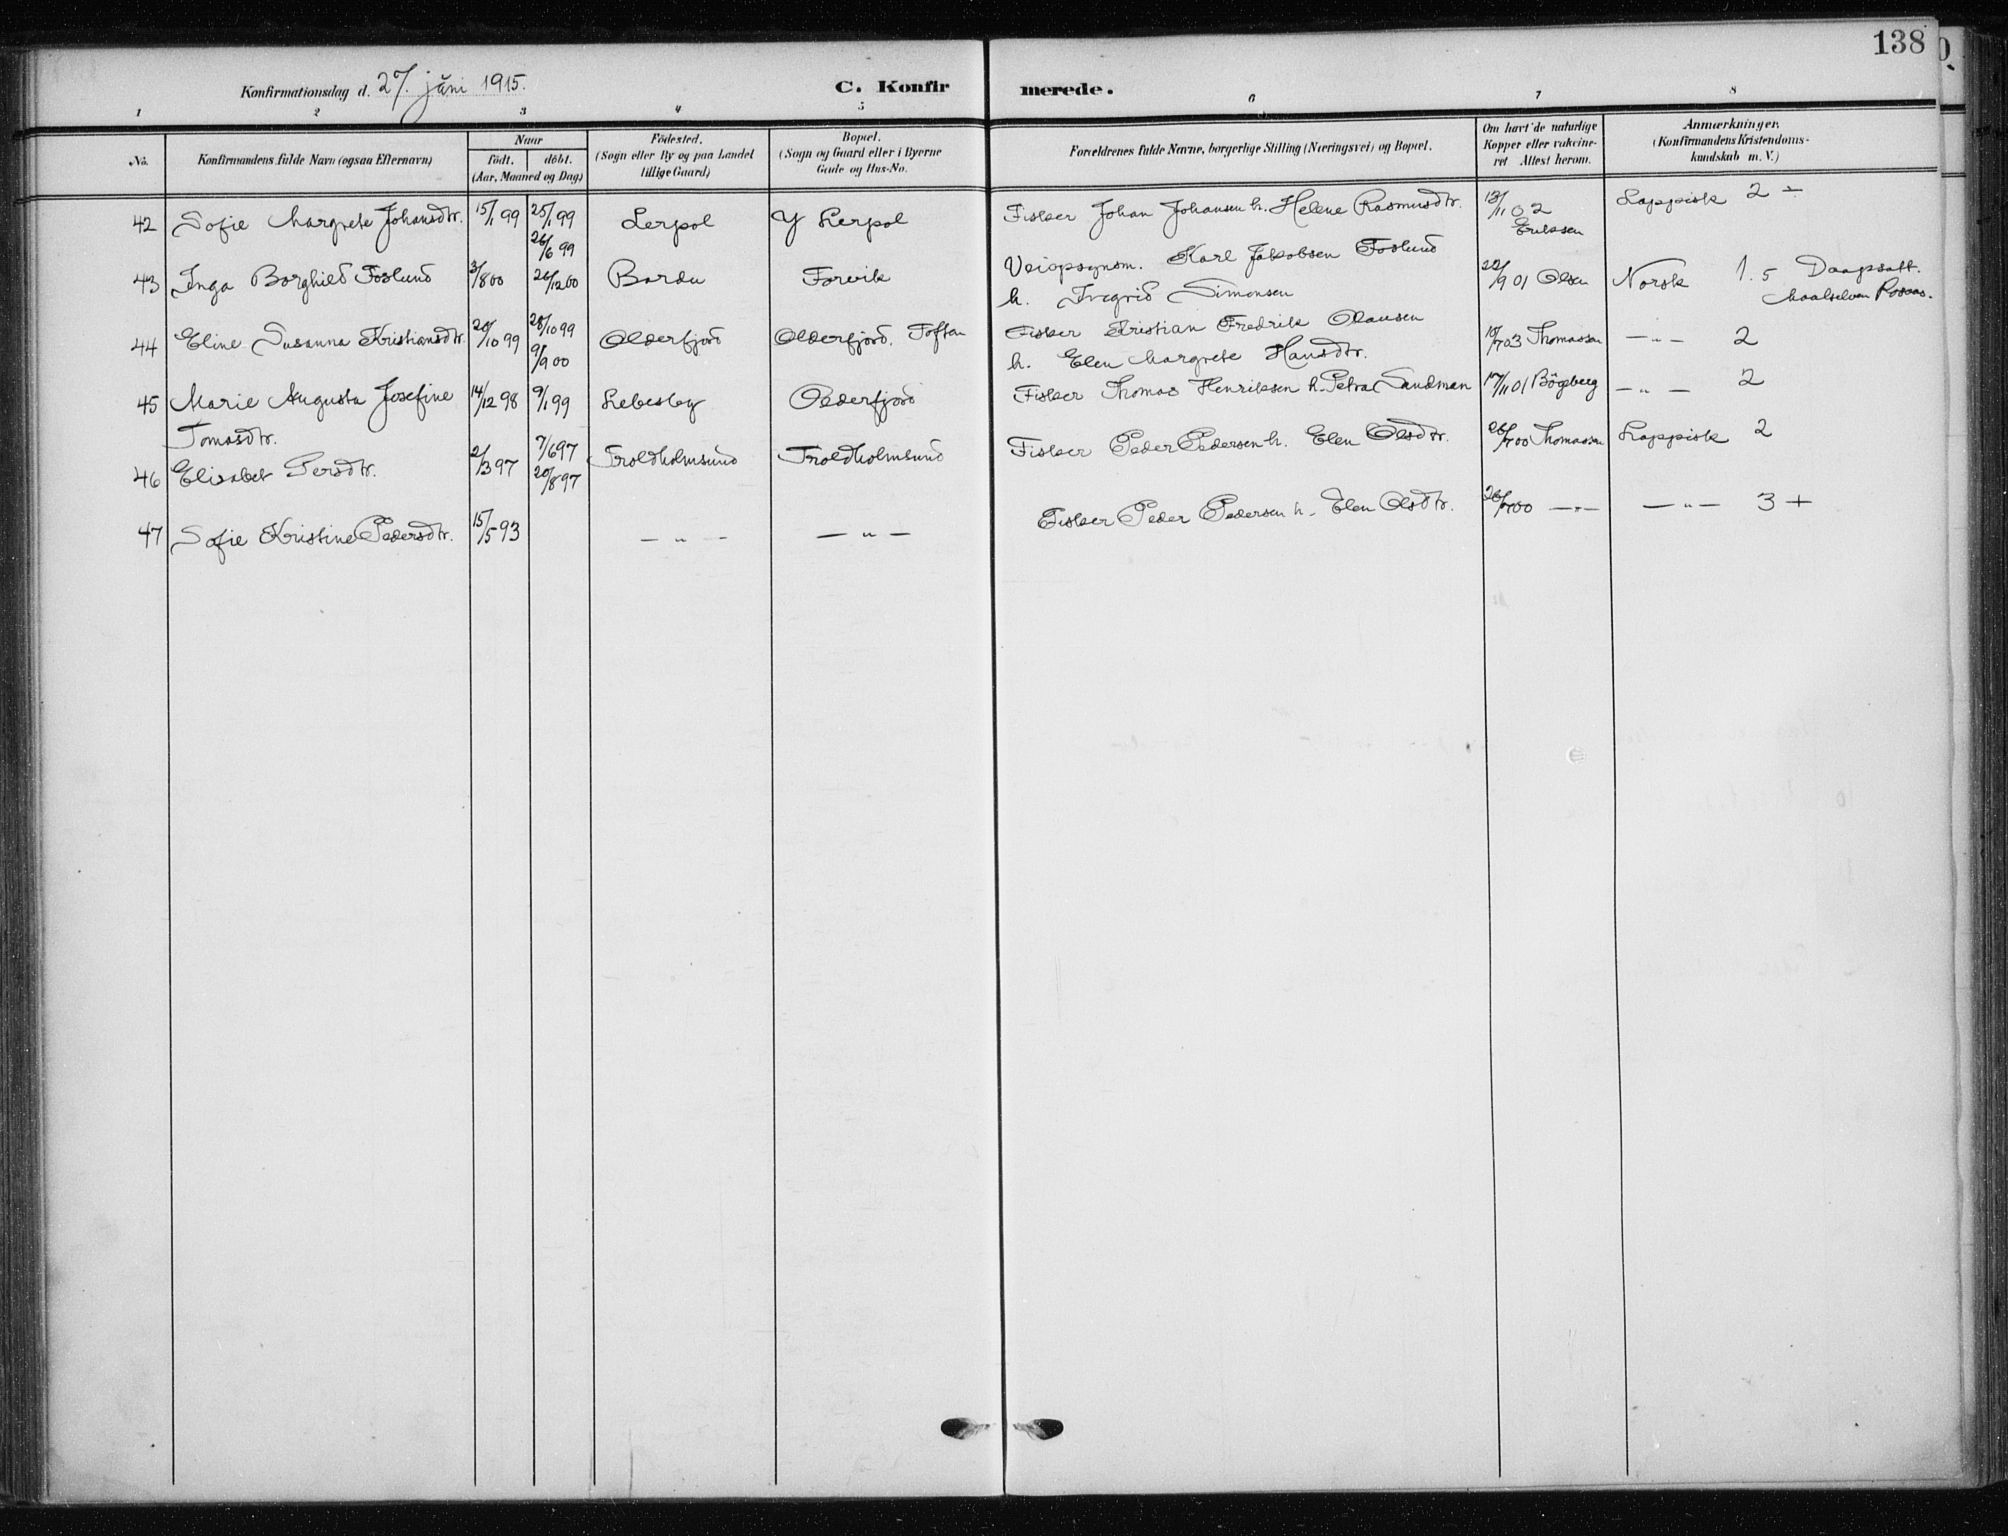 138
Konfirmationsdag d. 27. juni 1915.
C. Konfirmerede.
1 2 3 4 5 6 7 8
No. Konfirmandens fulde Navn (ogsaa Efternavn) Naar født. døbt. (Aar, Maaned og Dag) Födested. (Sogn eller By og paa Landet tillige Gaard) Bopæl. (Sogn og Gaard eller i Byerne Gade og Hus-No. Forældrenes fulde Navne, borgerlige Stilling (Næringsvei) og Bopæl. Om havt de naturlige Kopper eller vakcineret Attest herom. Anmærkninger. (Konfirmandens Kristendomskundskab m. V.)
42 Sofie Margrete Johansdtr. 15/1 99 25/1 99 26/6 99 Lerpol Y Lerpol Fisker Johan Johansen h. Helene Rasmusdtr. 13/11 02 Eriksen Lappisk 2 ÷
43 Inga Borghild Foslund 3/8 00 26/12 00 Bardu Forvik Veiopsynsm. Karl Jakobsen Foslund h. Ingrid Simonsen 22/9 01 Olsen Norsk 1.5 Daapsatt. Maalselven
44 Eline Susanna Kristiansdtr. 20/10 99 28/10 99 9/9 00 Olderfjord Olderfjord. Toften Fisker Kristian Fredrik Olausen h. Elen Margrete Hansdtr. 18/7 03 Thomassen — " — 2
45 Marie Augusta Josefine Tomasdtr. 14/12 98 9/1 99 Lebesby Olderfjord Fisker Thomas Henriksen h. Petra Sandman 17/11 01 Bögeberg — " — 2
46 Elisabet Persdtr. 2/3 97 7/6 97 20/8 97 Troldholmsund Troldholmsund Fisker Peder Pedersen h. Elen Olsdtr. 26/7 00 Thomassen Lappisk 2
47 Sofie Kristine Pedersdtr. 15/5 93 — " — — " — Fisker Peder Pedersen h. Elen Olsdtr. 26/7 00 — " — — " — 3 +